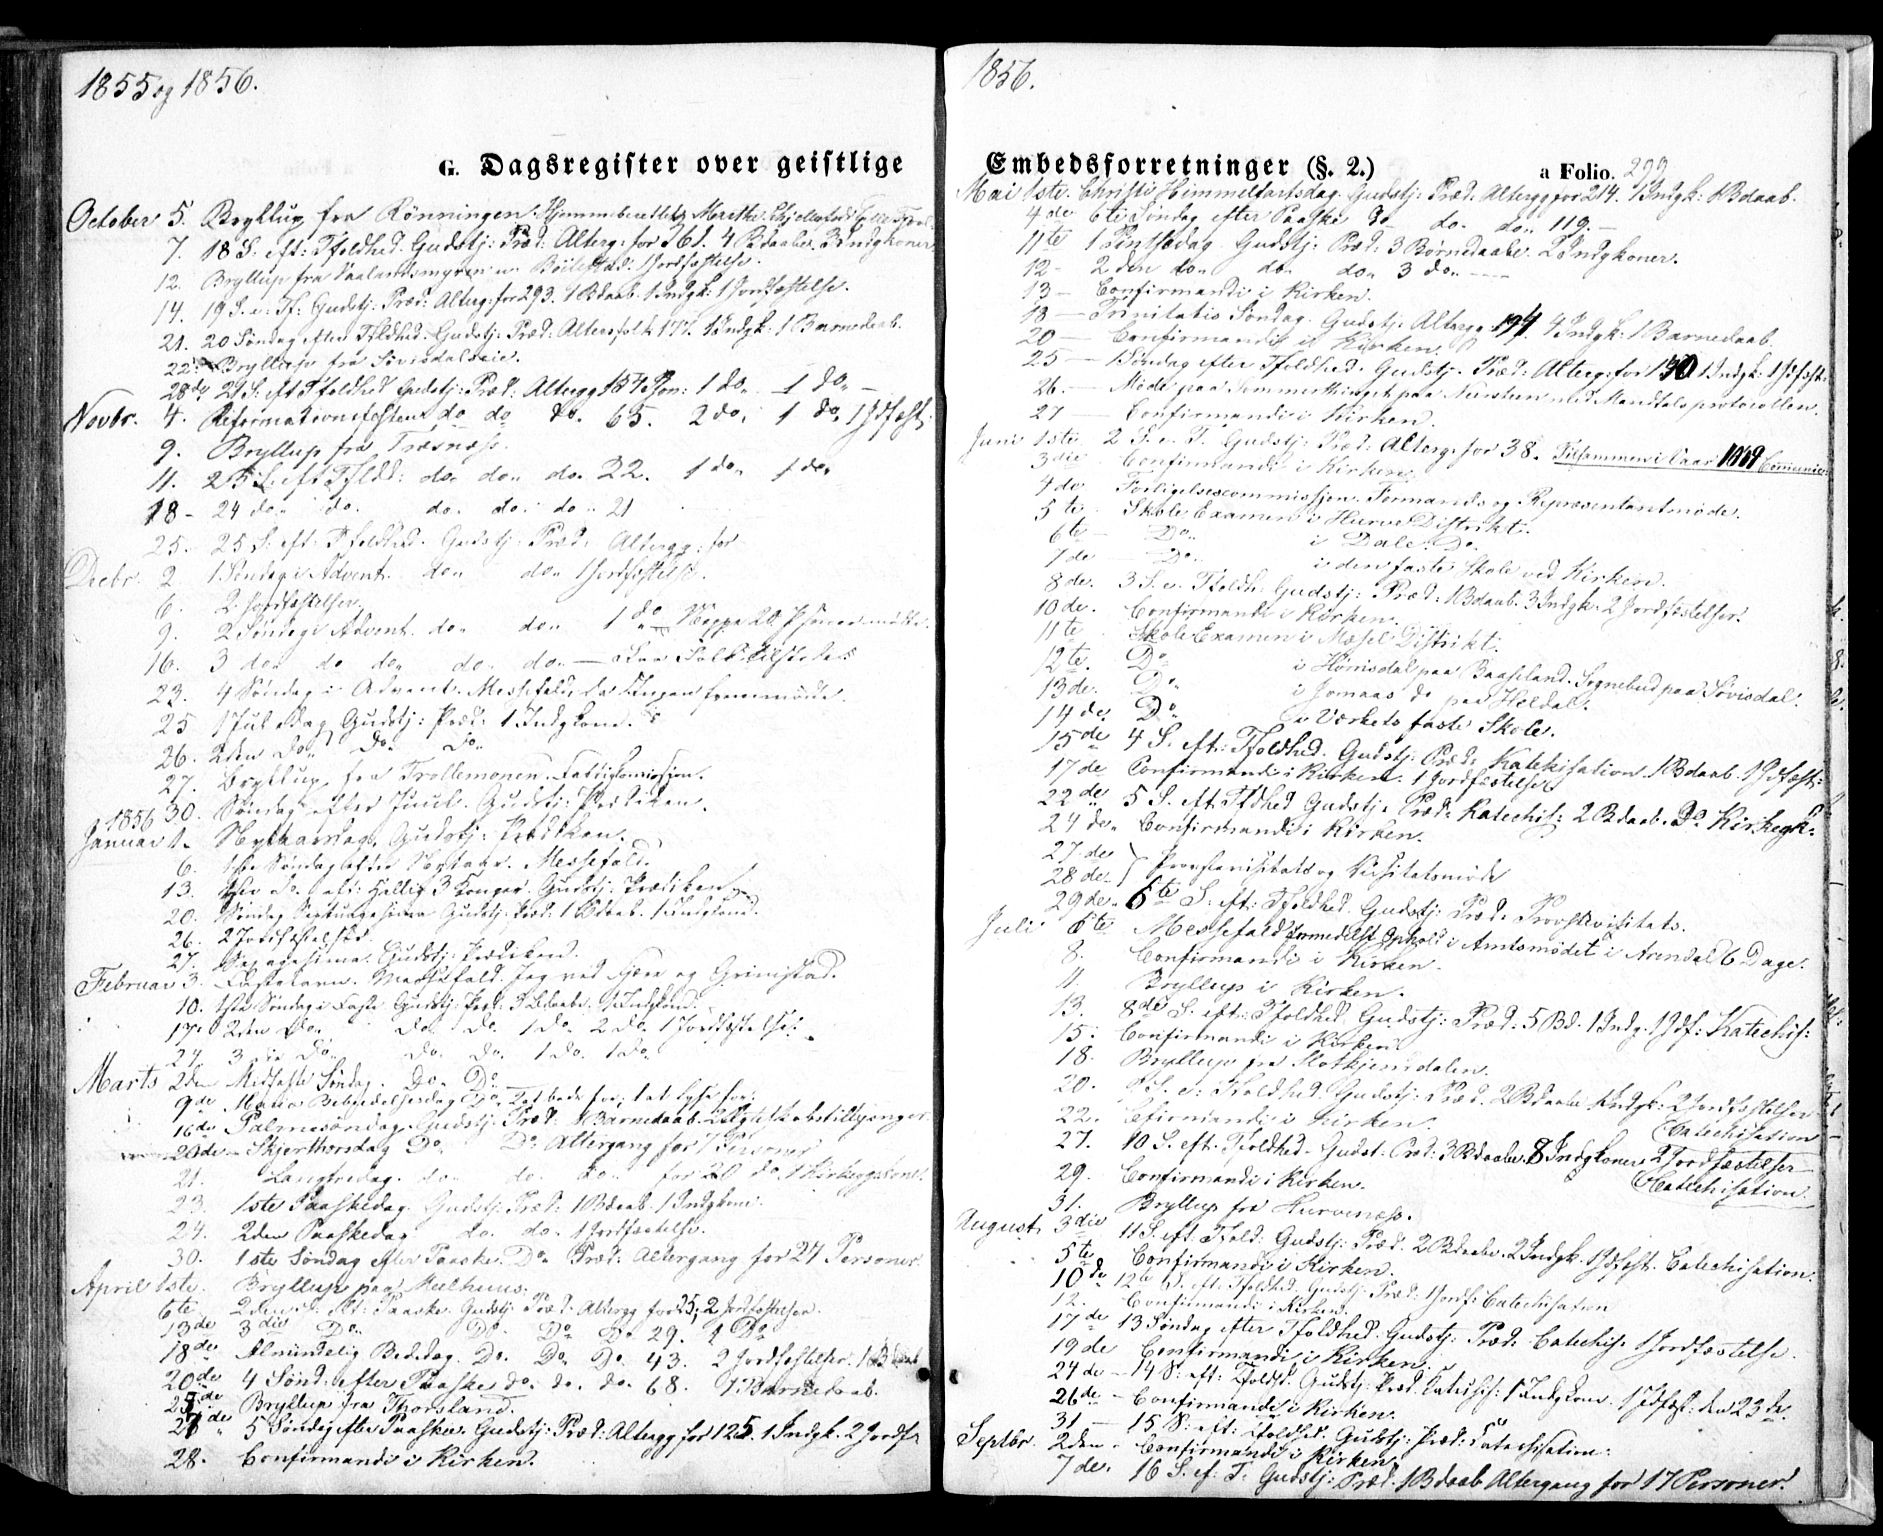 1855 og 1856.
G. Dagsregister over geistlige
October 5. Bryllup fra Rönningen. Hjemmeberettet Merethe
7. 18 S. eft: Tfoldhed. Gudstj: Præd: Alterg: for 361. 4 Bdaabe. 3 Indgkoner
12. Bryllup fra Vaalandsmyren 1 Jordfæstelse.
14. 19 S. e: Tf: Gudstj: Præd: Alterg: for 293. 1 Bdaab. 1 Indgk: 1 Jordfæstelse.
21. 20 Søndag efter Tfoldhed. Gudstj: Præd: 177. 1 Indgk: 1 Barnedaab.
22. Bryllup fra Sövisdal
28de 21 S. eft Tfoldhed Gudstj: Præd: Altergg 157 Pson: 1 do. 1 do. —
Novbr. 4. Reformationsfesten do do do. 65. 2 do. 1 do. 1 Jdfæst:
9. Bryllup fra Træsnæs.
11. 23 S. eft Tfldd: do. do. do. 22. 1 do. 1 do.
18 - 24 do. do. do. do. do. 21
25. 25 S. eft: Tfoldhed. Gudstj: Præd: Altergg: for
Decbr. 2 1 Søndag i Advent. do. do. 1 Jordfæstelse.
6. 2 Jordfæstelser.
9. 2 Søndag i Advent. do. do. 1 do
16. 3 do. do do. do. do. —
23. 4 Søndag i Advent. Messefald, da Ingen fremmødte.
25 1 Juledag Gudstj: Præd: 1 Indgkone.
26. 2den Do. Do. Do.
27. Bryllup fra Trollemonen. Fattigkommission.
30. Søndag efter Juul. Gudstj: Prædiken.
1856
Januar 1. Nytaarsdag. Gudstj: Prædiken.
6. 1ste Søndag efter Nytaar. Messefald.
13. do. Hellig 3 Konger. Gudstj: Prædiken.
20. Søndag Septuagesima Gudstj: Præd: 1 Bdaab. 1 Indgkone.
26. 2 Jordfæstelser.
27. Sexagesima. Gudstj: Prædiken.
Februar 3. Fastelavn. Messefald. Jeg ved Fjære og Grimstad.
10. 1ste Søndag i Faste Gudstj: Præd: 3 Bdaabe. 1 Indgkone.
17. 2den Do. Do. Do. 1 Do. 2 Do. 1 Jordfæstelse.
27. 3die Do. Do. Do. 1 Do. 1 Do.
Marts 2den Midfaste Søndag. Do. Do.
9de Mariæ Bebudelsesdag Do.
16de Palmesøndag. Gudstj: Præd: 1 Barnedaab.
20de Skjærthorsdag Do. Do. Altergang for 7 Personer
21. Langfredag. do. do. do. for 20 do. 1 Kirkegkone.
23. 1ste Paaskedag. Gudstj: Præd: 1 Bdaab. 1 Indgkone.
24. 2den Paaskedag do. do. 1 Jordfæstelse.
30. 1ste Søndag efter Paaske. Do. Præd: Altergang for 27 Personer.
April 1ste. Bryllup paa Mælhuus.
6te 2den S. eft: Paaske. Gudstj: Præd: Altergg for 25; 2 Jordfæstelser.
13de 3die Do. Do. Do. Do. 29. 1 Do
18de Almindelig Bededag. Do. Do. Do. 43. 2 Jordfæstelser. 1 Bdaab
20de 4 Sønd: efter Paaske do. do. do. 68. 1 Barnedaab.
25de Bryllup fra Thorsland.
27de 5 Søndag efter Paaske. Gudstj: Præd: Altergg for 125. 1 Indgk. 2 Jordf:
28. Confirmandi i Kirken.
1856.
Embedsforretninger (§. 2.) a Folio. 299
Mai 1ste. Christi Himmelfartsdag. Gudstj: Præd. Altergg for 214. 1 Indgk: 1 Bdaab.
4de 6te Søndag efter Paaske do do. do. 119. —
11te 1 Pintsedag. Gudstj: Præd: 3 Børnedaabe. 2 Indgkoner.
12 - 2den do. do. do. 3 do. —
13 — Confirmandi i Kirken.
18 — Trinitatis Søndag. Gudstj. Alterg. 194. 4 Indgk: 1 Barnedaab.
20 — Confirmandi i Kirken.
25 — 1 Søndag efter Tfoldhed. Gudstj. Præd: Alterg: for 130 1 Indgk: 1 Jdfæst:
26. — Møde paa Sommerthinget paa med Mandtalsprotocollen.
27 — Confirmandi i Kirken.
Juni 1ste 2 S. e. T. Gudstj: Præd: Alterg: for 38. Tilsammen i Vaar 1869 Communic:
3die Confirmandi i Kirken.
4de Forligelsescommission. Formands og Repræsentantmøde.
5te Skole Examen i Hurve Distrikt.
6te — Do. i Dale Do.
7de — Do. i den faste Skole ved Kirken.
8de. 3 S. e. Tfoldh. Gudstj: Præd: 1 Bdaab. 3 Indgk. 2 Jordfæstelser.
10de. Confirmandi i Kirken.
11te Skole Examen i Mæsel Distrikt.
12te. Do i Hörrisdal paa Baaseland. Sognebud paa Sövisdal.
13de. Do. i Jomaas do paa Heldal.
14de Do. i Værkets faste Skole.
15de 4 S. eft: Tfoldhed. Gudstj: Præd: Katekisation. 1 Bdaab. 1 Jdfæst:
17de Confirmandi i Kirken. 1 Jordfæstelse.
22de 5 S. eft. Tfldhed Gudstj: Præd: Katechis: 2 Bdaab. Do Kirkegk:
24de. Confirmandi i Kirken.
27de
28de. } Provstevisitats og Visitatsmøde
29de. 6te S: eft: Tfoldhed. Gudstj: Præd: Provstevisitats.
Juli 6te Messefald formedelst Ophold i Amtsmødet i Arendal 6 Dage.
8. Confirmandi i Kirken.
11. Bryllup i Kirken.
13. 8de S. eft: Tfoldhed. Gudstj: Præd: 5 Bd. 1 Indg. 1 Jdf: Katechis:
15. Confirmandi i Kirken.
18. Bryllup fra
20. 9 S. e: Tfoldhed. Gudstj: Præd. 2 Bdaabe Indgk: 2 Jordfæstelser Catechisation
22. Cfirmandi i Kirken.
27. 10 S. eft. Tfoldhed. Gudst. Præd: 3 Bdaabe. 8 Indgkoner. 2 Jordfæstelser
29. Confirmandi i Kirken. Catechisation.
31. Bryllup fra Hurvenæs.
August 3die 11 S. eft. Tfold: Gudstj: Præd. 2 Bdaabe. 2 Indgk. 1 Jdfæst. Catechisation.
5te Confirmandi i Kirken.
10de 12te S. eft. Tfoldhed. Gudstj: Præd: 1 Jordf: Catechisation
12. Confirmandi i Kirken.
17de 13 Søndag efter Tfoldhed. Gudstj: Præd: Catechis. 1 Jordfæstelse.
19de Confirmandi i Kirken.
24de — 14 S: eft: Tfoldhd. Gudstj: Præd. Katechis: 1 Indgkone. 1 Jdfæst: den 23de.
26de — Confirmandi i Kirken.
31 — 15 S: eft: Tfoldhed. Gudstj: Præd: Catechisation.
Septbr. 2den — Confirmandi i Kirken.
7de. 16 S. ef: T: Gudstj: Præd: 1 Bdaab Altergang for 17 Personer.